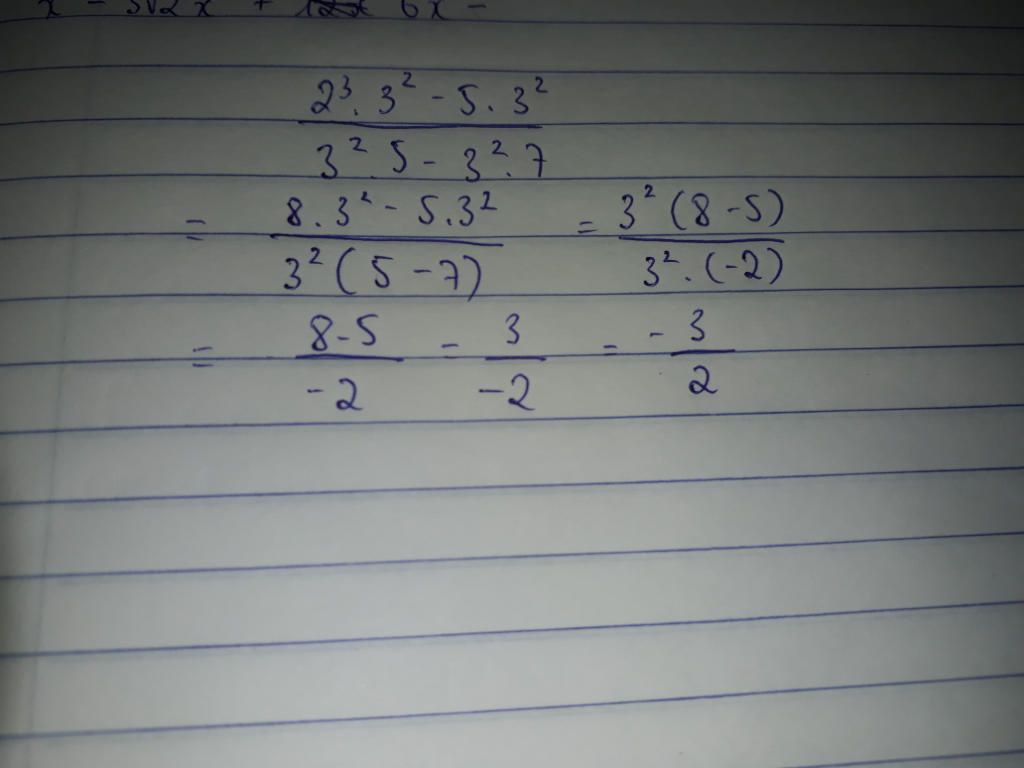 x - 3√2x + 6x -
2³ . 3² - 5 . 3²
3² . 5 - 3² . 7
= 8 . 3² - 5 . 3² = 3² (8 - 5)
3² (5 - 7) 3² . (-2)
= 8 - 5 = 3 = - 3
-2 -2 2